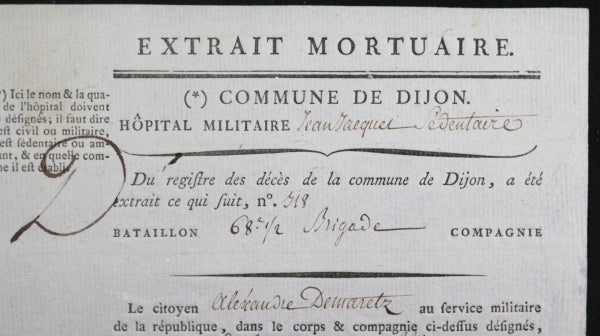 EXTRAIT MORTUAIRE.
*) Ici le nom & la qua-
de l'hôpital doivent
désignés; il faut dire
est civil ou militaire,
est sédentaire ou am-
ant, & en quelle com-
ne il est établi.
(*) COMMUNE DE DIJON.
HÔPITAL MILITAIRE Jean Jacques Sédentaire
D
Du registre des décès de la commune de Dijon, a été
extrait ce qui suit, n°. 318
BATAILLON 68e 1/2 Brigade COMPAGNIE
Le citoyen Alexandre Demaretz au service militaire
de la république, dans le corps & compagnie ci-dessus désignés,